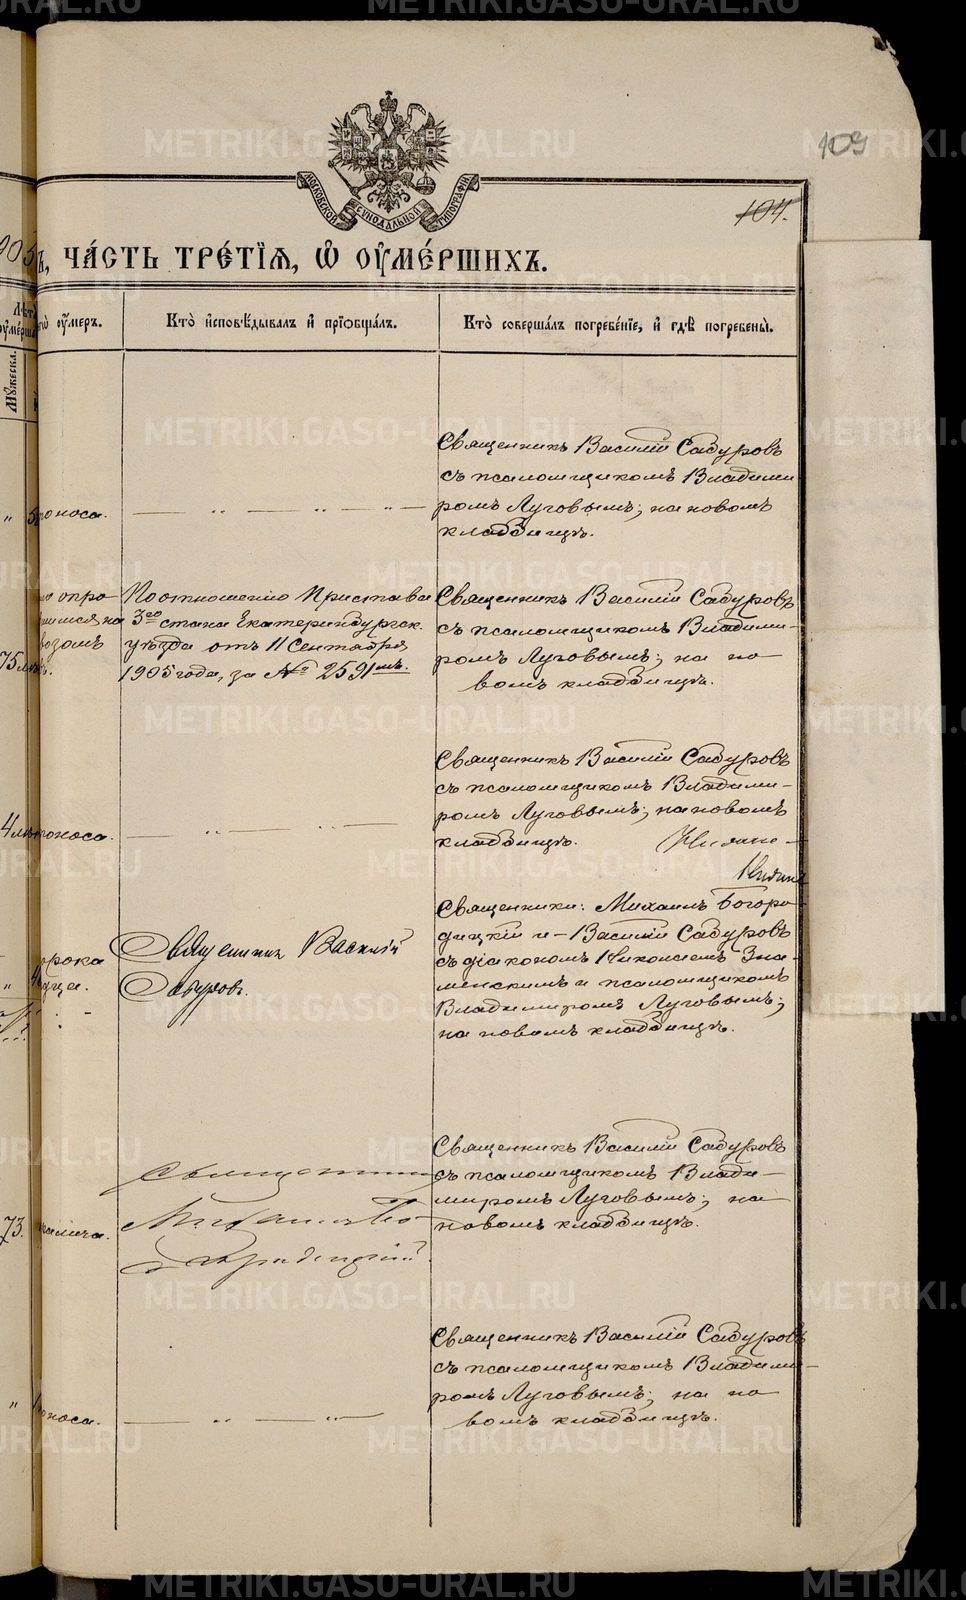 109
МОСКОВСКОЙ СУНОДАЛЬНОЙ ТИПОГРАФІИ
104.
905
ъ, ЧА́СТЬ ТРЕ́ТІѦ, Ѡ҆ ОУ҆МЕ́РШИХЪ.
Лѣт
оу҆ме́рш
Мꙋ́жеска.
гѡ̀ оу҆́меръ.
Кто̀ и҆сповѣ́дывалъ и҆ прїѡбща́лъ.
Кто̀ соверша́лъ погребе́нїе, и҆ гдѣ̀ погребены̀.
Священникъ Василій Сабуровъ
съ псаломщикомъ Владими
ромъ Луговымъ; на новомъ
кладбищѣ.
" 5
оноса.
— " — " — " —
опро
шемся на
возомъ
75
По отношенію Пристава
3го стана Екатеринбургск.
уѣзда отъ 11 Сентября
1905 года, за № 2591мъ.
Священникъ Василій Сабуровъ
съ псаломщикомъ Владими-
ромъ Луговымъ; на но
вомъ кладбищѣ.
4
оноса.
— " — " —
Священникъ Василій Сабуровъ
съ псаломщикомъ Владими-
ромъ Луговымъ; на новомъ
кладбищѣ.
орока
дца.
Священникъ Василій
Сабуровъ.
Священники: Михаилъ Богоро-
дицкій и — Василій Сабуровъ
съ діакономъ Николаемъ Зна-
менскимъ и псаломщикомъ
Владимиромъ Луговымъ;
на новомъ кладбищѣ.
73.
Священникъ
Михаилъ Бо-
городицкій.
Священникъ Василій Сабуровъ
съ псаломщикомъ Влади-
миромъ Луговымъ; на
новомъ кладбищѣ.
" 1
оноса.
— " — " —
Священникъ Василій Сабуровъ
съ псаломщикомъ Владими-
ромъ Луговымъ; на но
вомъ кладбищѣ.
METRIKI.GASO-URAL.RU